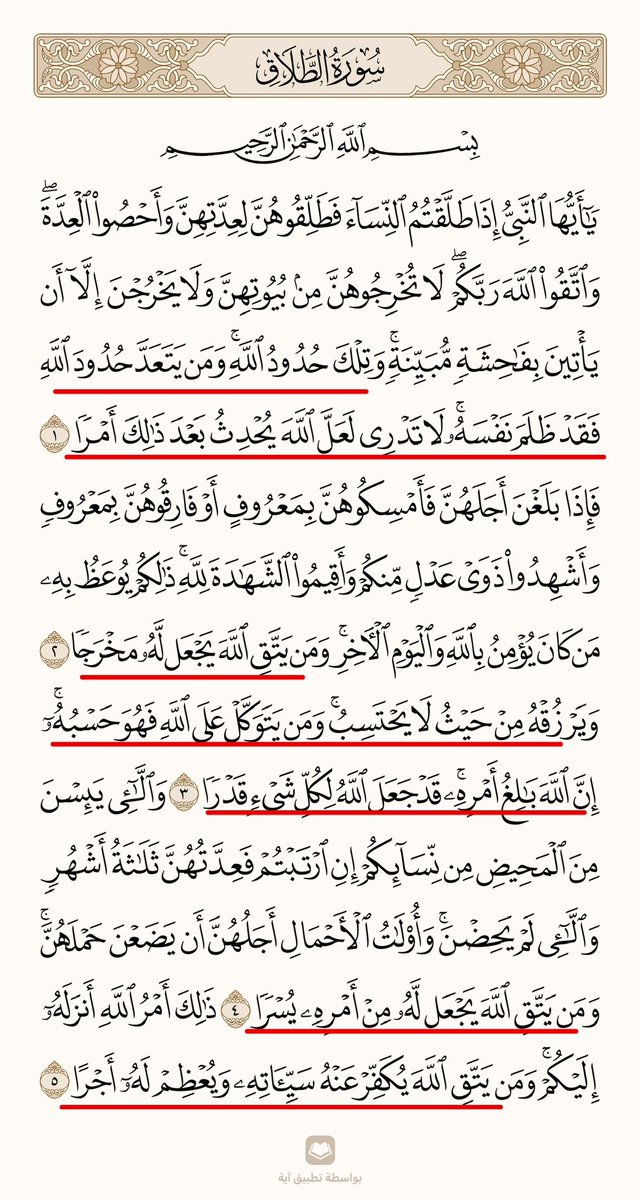 سُورَةُ الطَّلَاقِ
بِسْمِ ٱللَّهِ ٱلرَّحْمَٰنِ ٱلرَّحِيمِ
يَٰٓأَيُّهَا ٱلنَّبِىُّ إِذَا طَلَّقْتُمُ ٱلنِّسَآءَ فَطَلِّقُوهُنَّ لِعِدَّتِهِنَّ وَأَحْصُوا۟ ٱلْعِدَّةَ ۖ
وَٱتَّقُوا۟ ٱللَّهَ رَبَّكُمْ ۖ لَا تُخْرِجُوهُنَّ مِنۢ بُيُوتِهِنَّ وَلَا يَخْرُجْنَ إِلَّآ أَن
يَأْتِينَ بِفَٰحِشَةٍ مُّبَيِّنَةٍ ۚ وَتِلْكَ حُدُودُ ٱللَّهِ ۚ وَمَن يَتَعَدَّ حُدُودَ ٱللَّهِ
فَقَدْ ظَلَمَ نَفْسَهُۥ ۚ لَا تَدْرِى لَعَلَّ ٱللَّهَ يُحْدِثُ بَعْدَ ذَٰلِكَ أَمْرًا ١
فَإِذَا بَلَغْنَ أَجَلَهُنَّ فَأَمْسِكُوهُنَّ بِمَعْرُوفٍ أَوْ فَارِقُوهُنَّ بِمَعْرُوفٍ
وَأَشْهِدُوا۟ ذَوَىْ عَدْلٍ مِّنكُمْ وَأَقِيمُوا۟ ٱلشَّهَٰدَةَ لِلَّهِ ۚ ذَٰلِكُمْ يُوعَظُ بِهِۦ
مَن كَانَ يُؤْمِنُ بِٱللَّهِ وَٱلْيَوْمِ ٱلْءَاخِرِ ۚ وَمَن يَتَّقِ ٱللَّهَ يَجْعَل لَّهُۥ مَخْرَجًا ٢
وَيَرْزُقْهُ مِنْ حَيْثُ لَا يَحْتَسِبُ ۚ وَمَن يَتَوَكَّلْ عَلَى ٱللَّهِ فَهُوَ حَسْبُهُۥٓ ۚ
إِنَّ ٱللَّهَ بَٰلِغُ أَمْرِهِۦ ۚ قَدْ جَعَلَ ٱللَّهُ لِكُلِّ شَىْءٍ قَدْرًا ٣ وَٱلَّٰٓـِٔى يَئِسْنَ
مِنَ ٱلْمَحِيضِ مِن نِّسَآئِكُمْ إِنِ ٱرْتَبْتُمْ فَعِدَّتُهُنَّ ثَلَٰثَةُ أَشْهُرٍ
وَٱلَّٰٓـِٔى لَمْ يَحِضْنَ ۚ وَأُو۟لَٰتُ ٱلْأَحْمَالِ أَجَلُهُنَّ أَن يَضَعْنَ حَمْلَهُنَّ ۚ
وَمَن يَتَّقِ ٱللَّهَ يَجْعَل لَّهُۥ مِنْ أَمْرِهِۦ يُسْرًا ٤ ذَٰلِكَ أَمْرُ ٱللَّهِ أَنزَلَهُۥٓ
إِلَيْكُمْ ۚ وَمَن يَتَّقِ ٱللَّهَ يُكَفِّرْ عَنْهُ سَيِّـَٔاتِهِۦ وَيُعْظِمْ لَهُۥٓ أَجْرًا ٥
بواسطة تطبيق آية